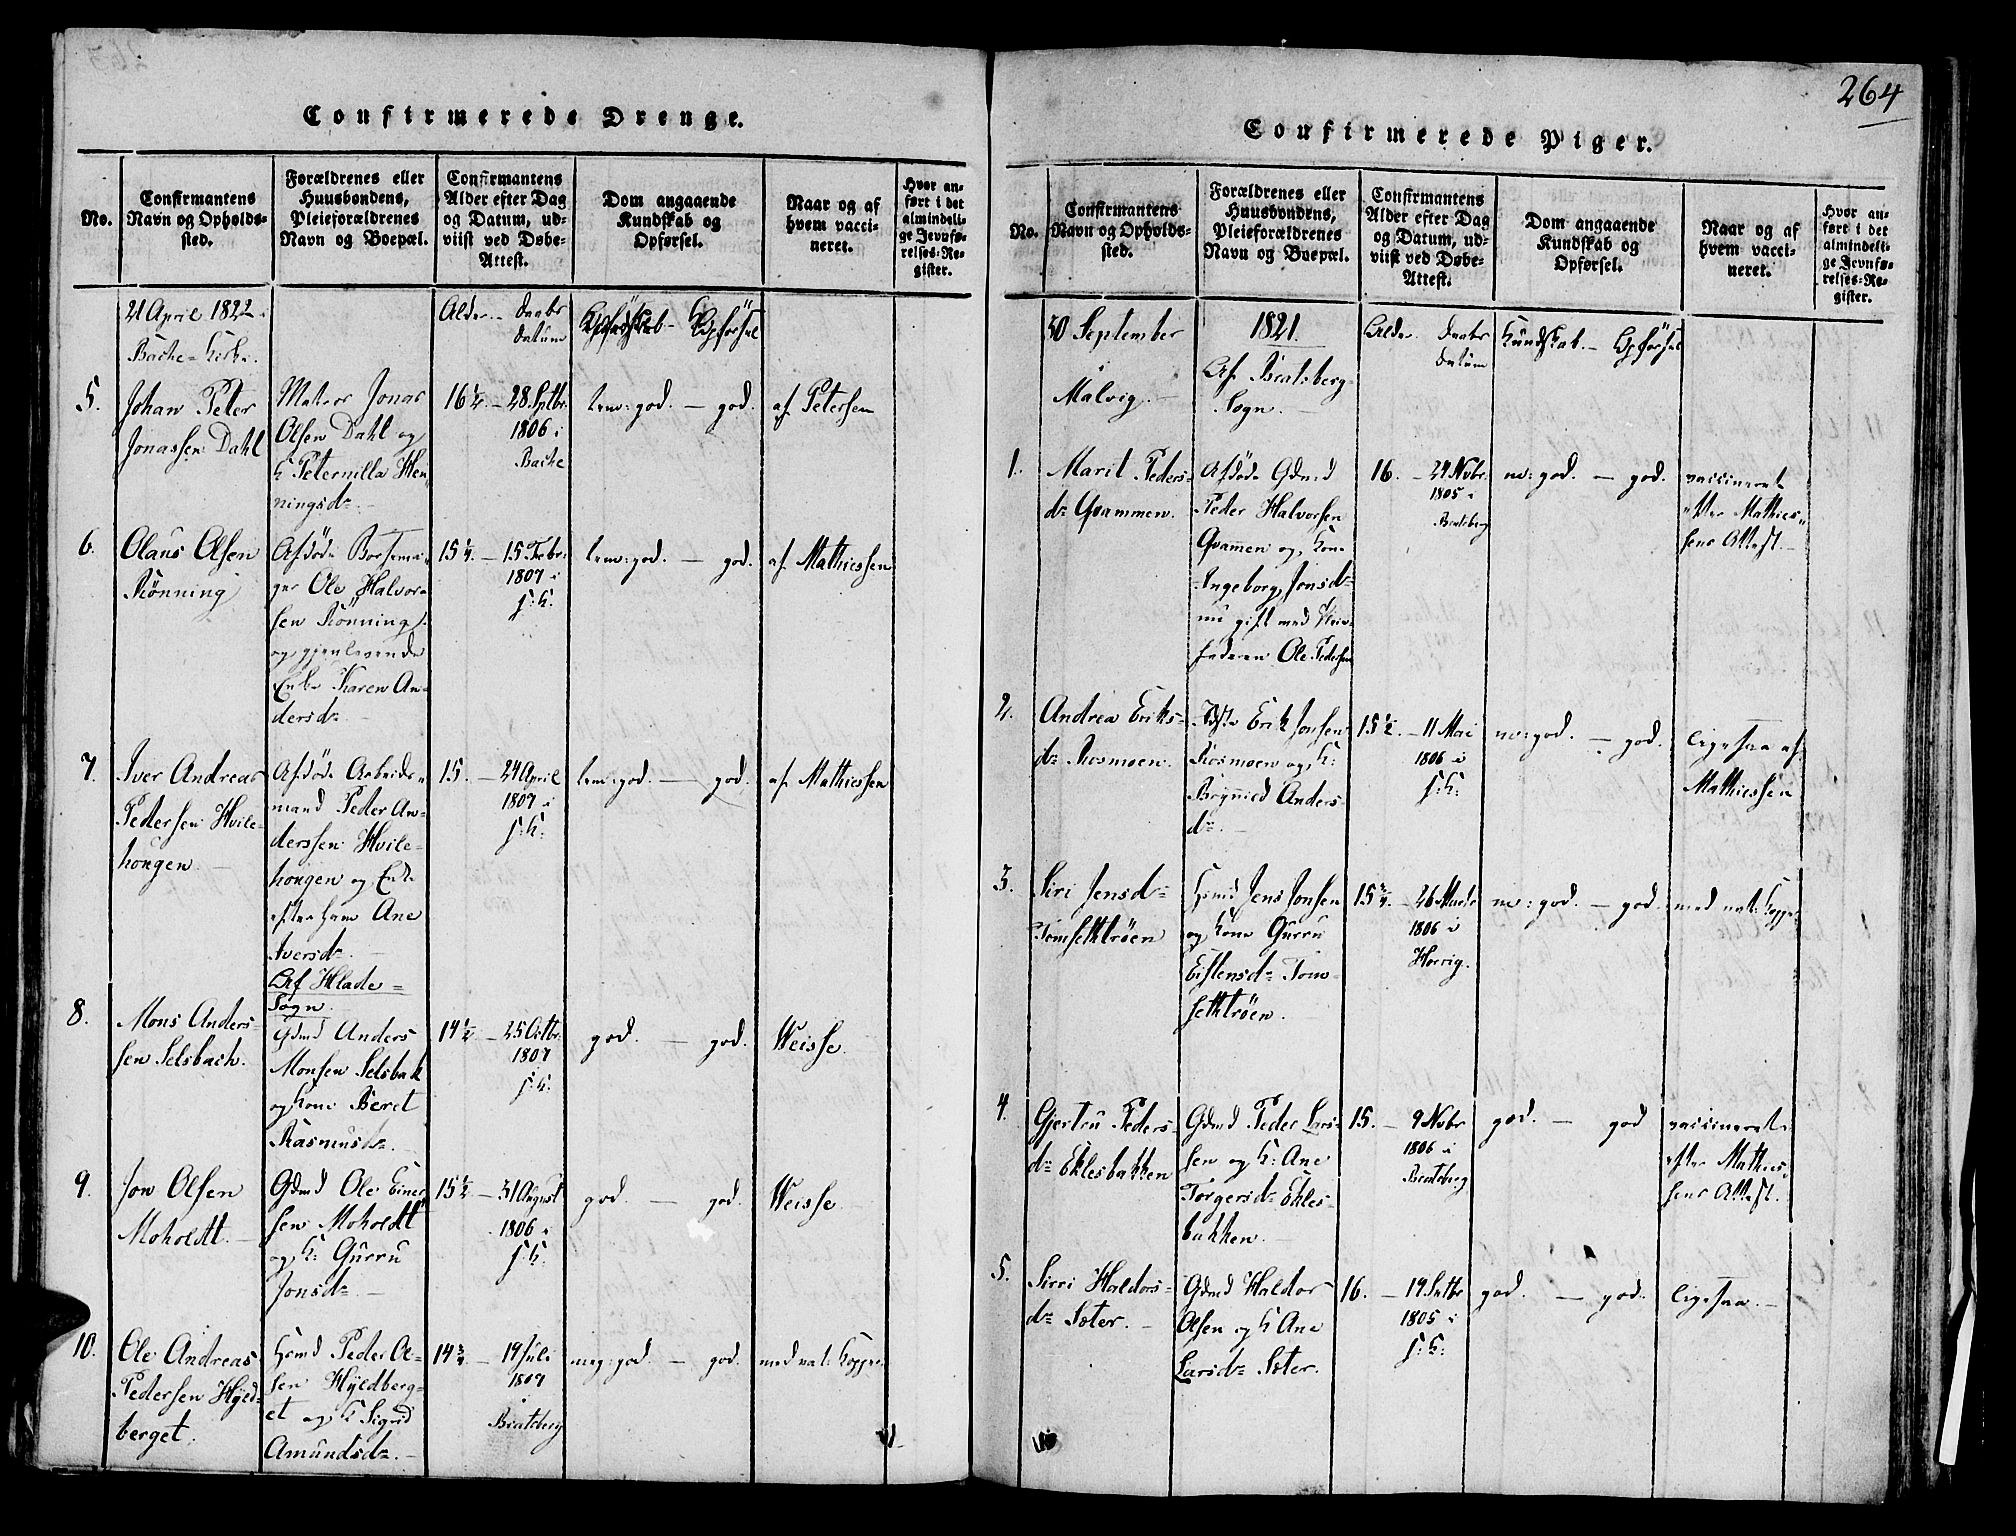 264
Confirmerede Drenge.
No.
Confirmantens
Navn og Opholds-
sted.
Forældrenes eller
Huusbondens,
Pleieforældrenes
Navn og Boepæl.
Confirmantens
Alder efter Dag
og Datum, ud-
viist ved Døbe-
Attest.
Dom angaaende
Kundskab og
Opførsel.
Naar og af
hvem vacci-
neret.
Hvor an-
ført i det
almindeli-
ge Jevnfø-
relses-Re-
gister.
21 April 1822.
Bache-Kirke.
Alder. - Daabs
datum
Kundskab - Opførsel
5.
Johan Peter
Jonassen Dahl
Matros Jonas
Olsen Dahl og
K. Peternilla Hen-
ningsd.
16½ - 28 Sptbr.
1806 i
Bache
tem: god. - god.
af Petersen
6.
Olaus Olsen
Rönning
Afdöde
Ole Halvor-
sen Rönning
og gjenlevende
Enke Karen An-
dersd.
15¼. - 15 Febr.
1807 i
s: K:
tem: god. - god.
af Mathiessen
7.
Iver Andreas
Pedersen Hvile-
hougen
Afdöde Arbeids-
mand Peder An-
derssen Hvile-
hougen og Enke
efter ham Ane
Iversd.
15. - 24 April
1807 i
s: K:
tem: god. - god.
af Mathiessen
Af Hlade-
Sogn.
8.
Mons Anders-
sen Selsbach.
Gdmd Anders
Monsen Selsbak
og Kone Beret
Rasmusd.
14½ - 25 Octbr.
1807
s: K.
god. - god.
Weisse.
9.
Jon Olsen
Moholdt.
Gdmd Ole Einer-
sen Moholdt
og K: Gurru
Jonsd.
15½ - 31 August
1806 i
s: K:
god - god.
Weisse.
10.
Ole Andreas
Pedersen Hÿld-
berget.
Hsmd Peder Ol-
sen Hÿldberg-
et og K Sigrid
Amundsd.
14¾ - 19 Juli
1807
Bratsberg
meg: god. - god.
med nat: Kopper
Confirmerede Piger.
No.
Confirmantens
Navn og Opholds-
sted.
Forældrenes eller
Huusbondens,
Pleieforældrenes
Navn og Boepæl.
Confirmantens
Alder efter Dag
og Datum, ud-
viist ved Døbe-
Attest.
Dom angaaende
Kundskab og
Opførsel.
Naar og af
hvem vacci-
neret.
Hvor an-
ført i det
almindeli-
ge Jevnfø-
relses-Re-
gister.
30 September
1821.
Malvig.
Af Bratsberg
Sogn.
Alder. Daabs
datum
Kundskab. - Opförsel
1.
Marit Peders-
d. Qvammen.
Afdöde Gdmd
Peder Halvorsen
Qvammen og Kone
Ingeborg Jonsd.
nu gift med Stiv-
faderen Ole Pedersen
16. - 24 Nvbr.
1805 i
Bratsberg
: god. - god.
vaccineret
efter Mathies-
sens Attest.
2.
Andrea Eriks-
d. Rosmoen.
Erik Jonsen
Rosmoen og K:
Brynnild Anders-
d.
15½. - 11 Mai
1806 i
s: K:
: god. - god.
ligesaa af
Mathiessen
3.
Siri Jensd.
Tomsettröen
Hsmd Jens Jonsen
og Kone Gurru
Estensd. Tom-
settröen.
15¾. - 26 Marts
1806 i
Horrig.
: god. - god.
med nat: Kopper
4.
Gjertru Peders-
d. Eklesbakken
Gdmd Peder Lars-
sen og K: Ane
Torgersd. Ekles-
bakken.
15. - 9 Nvbr
1806 i
Bratsberg
god. - god
vaccineret
efter Mathies-
sens Attest.
5.
Sirri Haldors-
d. Soter.
Gdmd Haldor
Olsen og K Ane
Larsd. Soter.
16. - 19 Sptbr
1805 i
s: K:
god. - god.
ligesaa.